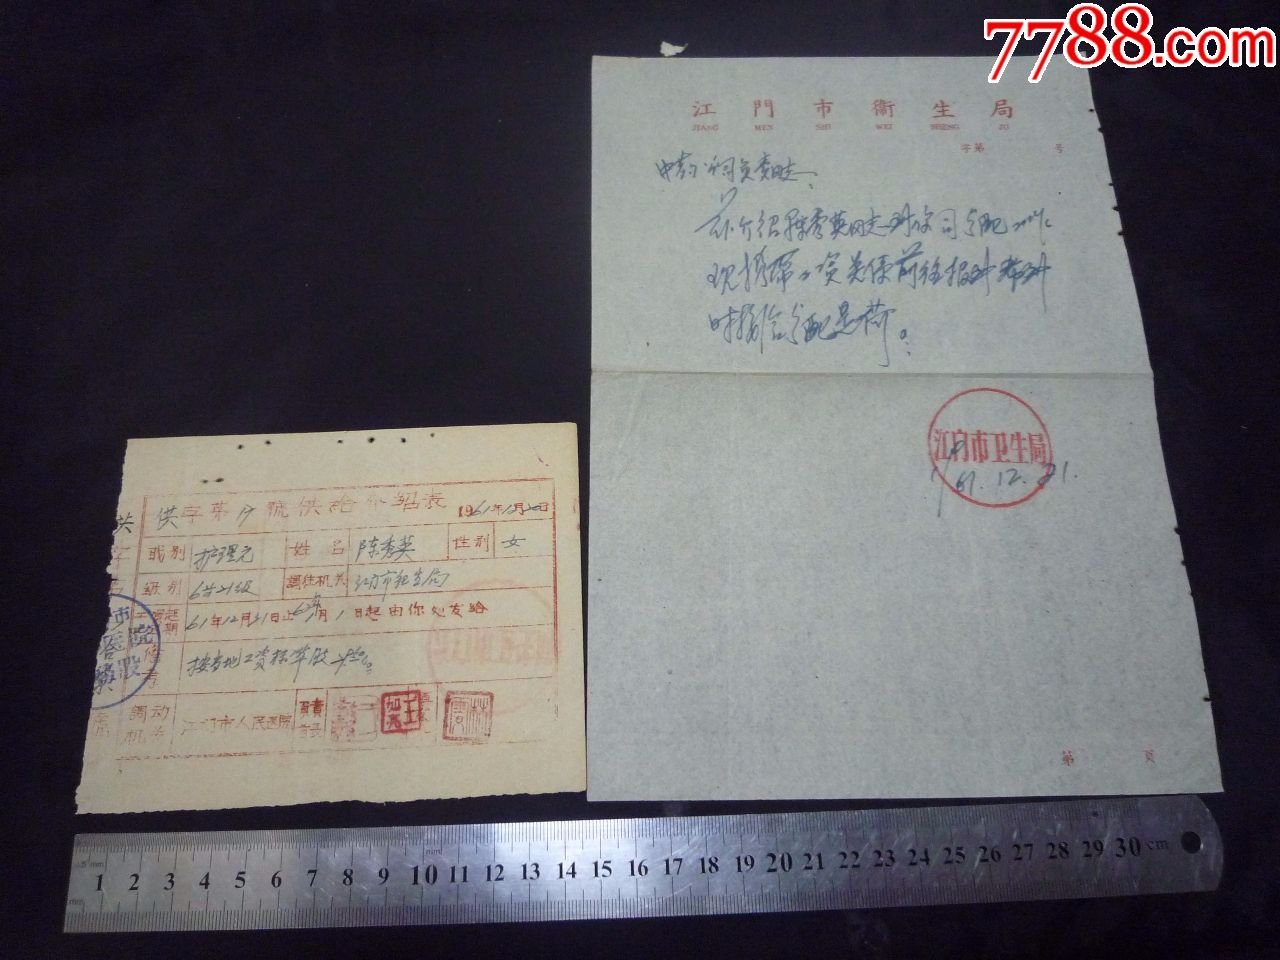 7788.com
江門市衛生局
JIANG MEN SHI WEI SHENG JU
字第 号
中药公司负责同志:
兹介绍陈秀英同志到你司分配工作
现携带工资关系前往报到希到
时接洽分配是荷。
江门市卫生局
61.12.21.
第 页
供字第 号供给介绍表 1961年12月20日
职别 护理员 姓名 陈秀英 性别 女
级别 21级 调往机关 江门市卫生局
61年12月31日止62年1月1日起由你处发给
按当地工资标准
调动机关 江门市人民医院 负责首长
1 2 3 4 5 6 7 8 9 10 11 12 13 14 15 16 17 18 19 20 21 22 23 24 25 26 27 28 29 30 cm